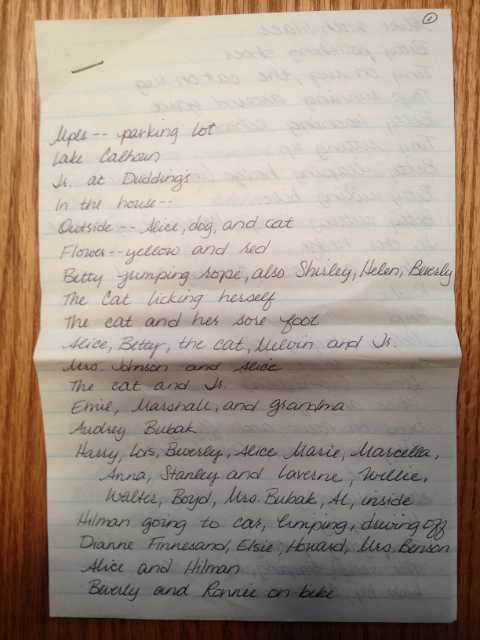 1
Mpls -- parking lot
Lake Calhoun
Jr. at Duddings
In the house --
Outside -- Alice, dog, and cat
Flower -- yellow and red
Betty jumping rope, also Shirley, Helen, Beverly
The Cat licking herself
The cat and her sore foot
Alice, Betty, the cat, Melvin and Jr.
Mrs. Johnson and Alice
The cat and Jr.
Ernie, Marshall, and grandma
Audrey Bubak
Harry, Lois, Beverly, Alice Marie, Marcella,
Anna, Stanley and Laverne, Willie,
Walter, Boyd, Mrs. Bubak, Al, inside
Hilman going to car, limping, driving off
Dianne Finnesand, Elsie, Howard, Mrs. Benson
Alice and Hilman
Beverly and Ronnie on bike